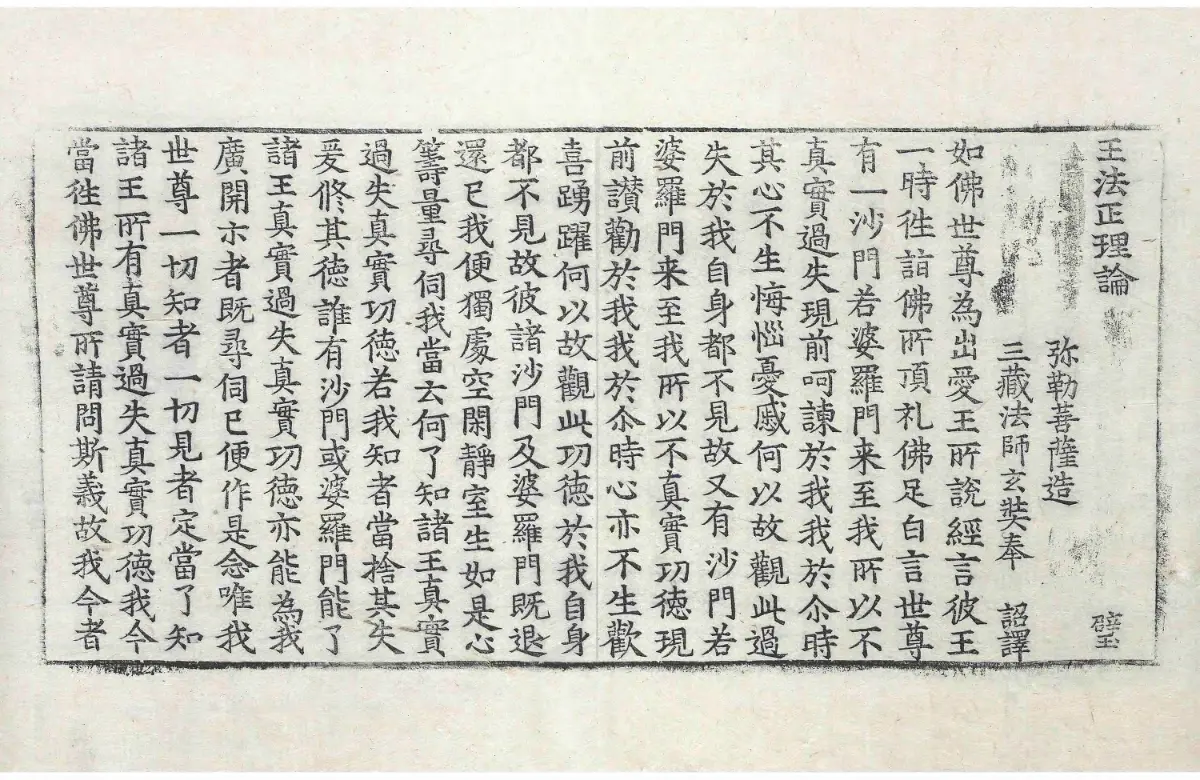 王法正理論　璧
弥勒菩薩造
三藏法師玄奘奉　詔譯
如佛世尊為出愛王所說經言彼王
一時徃詣佛所頂礼佛足白言世尊
有一沙門若婆羅門来至我所以不
真實過失現前呵諫於我我於尒時
其心不生悔惱憂慼何以故觀此過
失於我自身都不見故又有沙門若
婆羅門来至我所以不真實功徳現
前讃勸於我我於尒時心亦不生歡
喜踴躍何以故觀此功徳於我自身
都不見故彼諸沙門及婆羅門既退
還已我便獨處空閑靜室生如是心
籌量尋伺我當云何了知諸王真實
過失真實功徳若我知者當捨其失
爰修其徳誰有沙門或婆羅門能了
諸王真實過失真實功徳亦能為我
廣開示者既尋伺已便作是念唯我
世尊一切知者一切見者定當了知
諸王所有真實過失真實功徳我今
當徃佛世尊所請問斯義故我今者